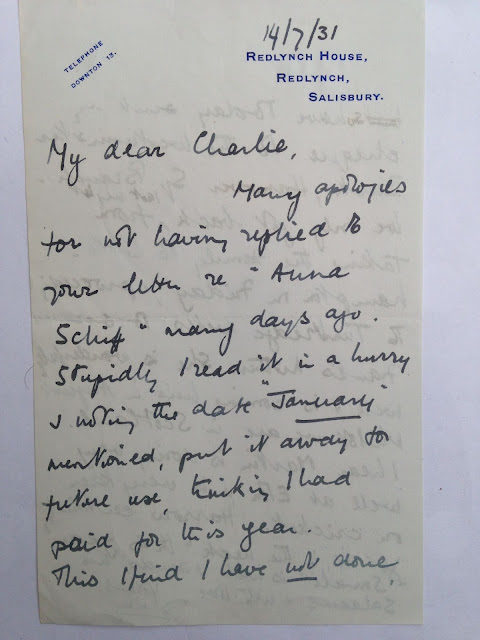 14/7/31
TELEPHONE
DOWNTON 13.
REDLYNCH HOUSE,
REDLYNCH,
SALISBURY.
My dear Charlie,
Many apologies
for not having replied to
your letter re "Anna
Schiff" many days ago.
Stupidly I read it in a hurry
& noting the date "January"
mentioned, put it away for
future use, thinking I had
paid for this year.
This I find I have not done,